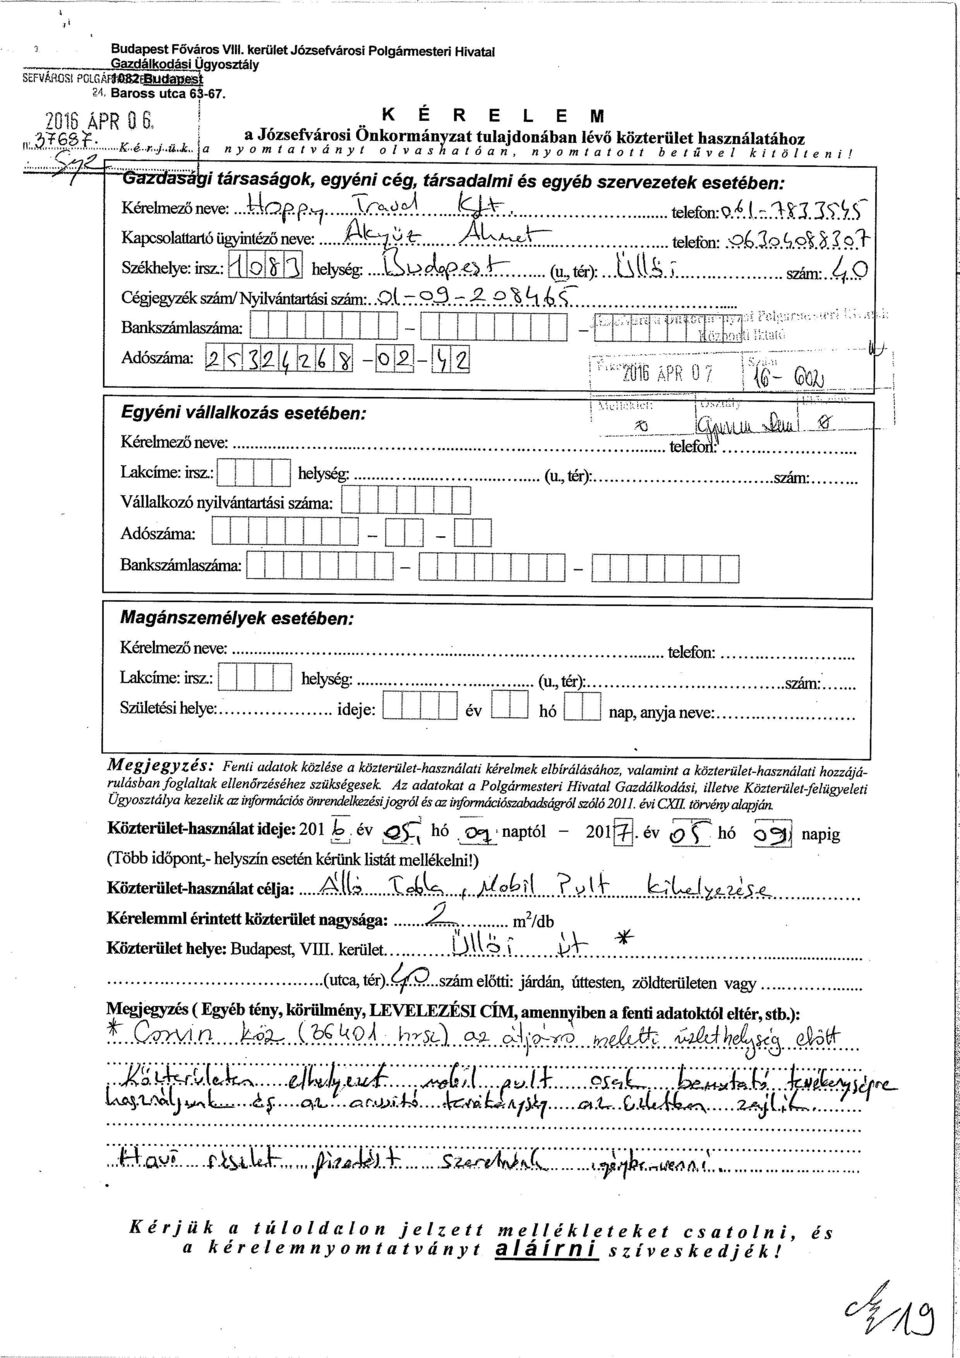 Budapest Főváros VIII. kerület Józsefvárosi Polgármesteri Hivatal
Gazdálkodási Ügyosztály
1082 Budapest
Baross utca 63-67.
2016 ÁPR 06.
37687
K É R E L E M
a Józsefvárosi Önkormányzat tulajdonában lévő közterület használatához
Kérjük a nyomtatványt olvashatóan, nyomtatott betűvel kitölteni!
Gazdasági társaságok, egyéni cég, társadalmi és egyéb szervezetek esetében:
Kérelmező neve: Hoppy Travel Kft. telefon: 061-7833545
Kapcsolattartó ügyintéző neve: Akyüz Ahmet telefon: 06304088307
Székhelye: irsz.: 1083 helység: Budapest (u., tér): Üllői szám: 40
Cégjegyzék szám/ Nyilvántartási szám: 01-09-208465
Bankszámlaszáma: – –
Adószáma: 25324268 – 02 – 42
2016 ÁPR 07
16-
Egyéni vállalkozás esetében:
Kérelmező neve: telefon:
Lakcíme: irsz.: helység: (u., tér): szám:
Vállalkozó nyilvántartási száma:
Adószáma: – –
Bankszámlaszáma: – –
Magánszemélyek esetében:
Kérelmező neve: telefon:
Lakcíme: irsz.: helység: (u., tér): szám:
Születési helye: ideje: év hó nap, anyja neve:
Megjegyzés: Fenti adatok közlése a közterület-használati kérelmek elbírálásához, valamint a közterület-használati hozzájá-
rulásban foglaltak ellenőrzéséhez szükségesek. Az adatokat a Polgármesteri Hivatal Gazdálkodási, illetve Közterület-felügyeleti
Ügyosztálya kezelik az információs önrendelkezési jogról és az információszabadságról szóló 2011. évi CXII. törvény alapján.
Közterület-használat ideje: 2016. év 05 hó 09 naptól – 2017. év 05 hó 09 napig
(Több időpont,- helyszín esetén kérünk listát mellékelni!)
Közterület-használat célja: Álló Tábla, Mobil Pult kihelyezése
Kérelemml érintett közterület nagysága: 2 m²/db
Közterület helye: Budapest, VIII. kerület Üllői út *
(utca, tér). 40 szám előtti: járdán, úttesten, zöldterületen vagy
Megjegyzés ( Egyéb tény, körülmény, LEVELEZÉSI CÍM, amennyiben a fenti adatoktól eltér, stb.):
* Corvin köz (36401 hrsz) az átjáró melletti üzlethelység előtt
Közterületen elhelyezett mobil pult csak bemutató tevékenységre
használjunk és az árusító tevékenység az üzletben zajlik.
Havi részlet fizetést szeretnénk igénybe venni.
Kérjük a túloldalon jelzett mellékleteket csatolni, és
a kérelemnyomtatványt aláírni szíveskedjék!
19